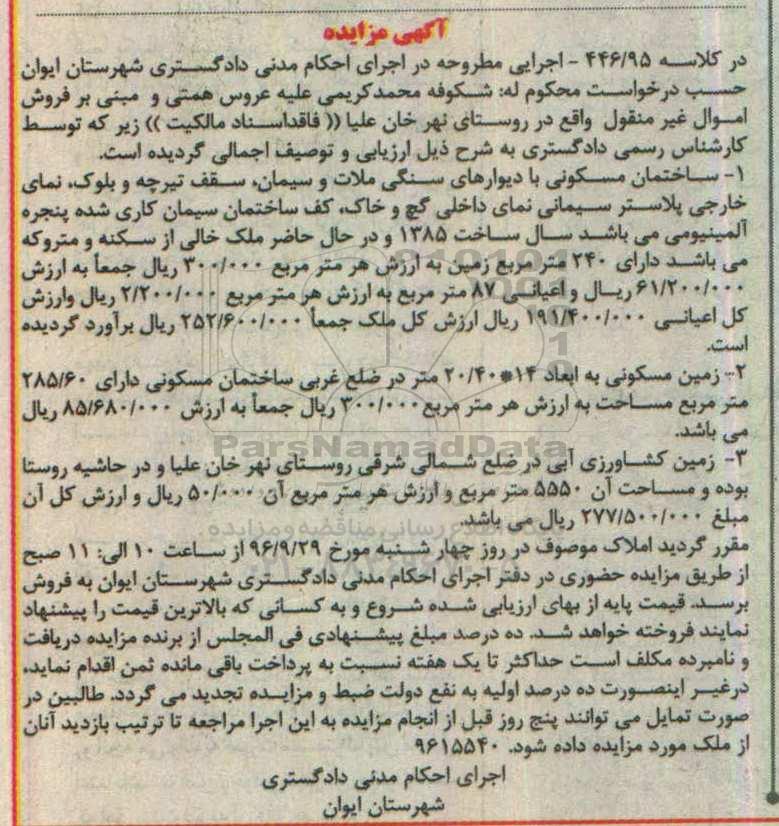 آگهی مزایده
در کلاسه ۴۴۶/۹۵ - اجرایی مطروحه در اجرای احکام مدنی دادگستری شهرستان ایوان
حسب درخواست محکوم له: شکوفه محمدکریمی علیه عروس همتی و مبنی بر فروش
اموال غیر منقول واقع در روستای نهر خان علیا (( فاقداسناد مالکیت )) زیر که توسط
کارشناس رسمی دادگستری به شرح ذیل ارزیابی و توصیف اجمالی گردیده است.
۱- ساختمان مسکونی با دیوارهای سنگی ملات و سیمان، سقف تیرچه و بلوک، نمای
خارجی پلاستر سیمانی نمای داخلی گچ و خاک، کف ساختمان سیمان کاری شده پنجره
آلمینیومی می باشد سال ساخت ۱۳۸۵ و در حال حاضر ملک خالی از سکنه و متروکه
می باشد دارای ۲۴۰ متر مربع زمین به ارزش هر متر مربع ۳۰۰/۰۰۰ ریال جمعاً به ارزش
۶۱/۲۰۰/۰۰۰ ریال و اعیانی ۸۷ متر مربع به ارزش هر متر مربع ۲/۲۰۰/۰۰۰ ریال وارزش
کل اعیانی ۱۹۱/۴۰۰/۰۰۰ ریال ارزش کل ملک جمعاً ۲۵۲/۶۰۰/۰۰۰ ریال برآورد گردیده
است.
۲- زمین مسکونی به ابعاد ۱۴*۲۰/۴۰ متر در ضلع غربی ساختمان مسکونی دارای ۲۸۵/۶۰
متر مربع مساحت به ارزش هر متر مربع ۳۰۰/۰۰۰ ریال جمعاً به ارزش ۸۵/۶۸۰/۰۰۰ ریال
می باشد.
ParsNamadData
۳- زمین کشاورزی آبی در ضلع شمالی شرقی روستای نهر خان علیا و در حاشیه روستا
بوده و مساحت آن ۵۵۵۰ متر مربع و ارزش هر متر مربع آن ۵۰/۰۰۰ ریال و ارزش کل آن
مبلغ ۲۷۷/۵۰۰/۰۰۰ ریال می باشد.
مقرر گردید املاک موصوف در روز چهار شنبه مورخ ۹۶/۹/۲۹ از ساعت ۱۰ الی: ۱۱ صبح
از طریق مزایده حضوری در دفتر اجرای احکام مدنی دادگستری شهرستان ایوان به فروش
برسد. قیمت پایه از بهای ارزیابی شده شروع و به کسانی که بالاترین قیمت را پیشنهاد
نمایند فروخته خواهد شد. ده درصد مبلغ پیشنهادی فی المجلس از برنده مزایده دریافت
و نامبرده مکلف است حداکثر تا یک هفته نسبت به پرداخت باقی مانده ثمن اقدام نماید.
درغیر اینصورت ده درصد اولیه به نفع دولت ضبط و مزایده تجدید می گردد. طالبین در
صورت تمایل می توانند پنج روز قبل از انجام مزایده به این اجرا مراجعه تا ترتیب بازدید آنان
از ملک مورد مزایده داده شود. ۹۶۱۵۵۴۰
اجرای احکام مدنی دادگستری
شهرستان ایوان